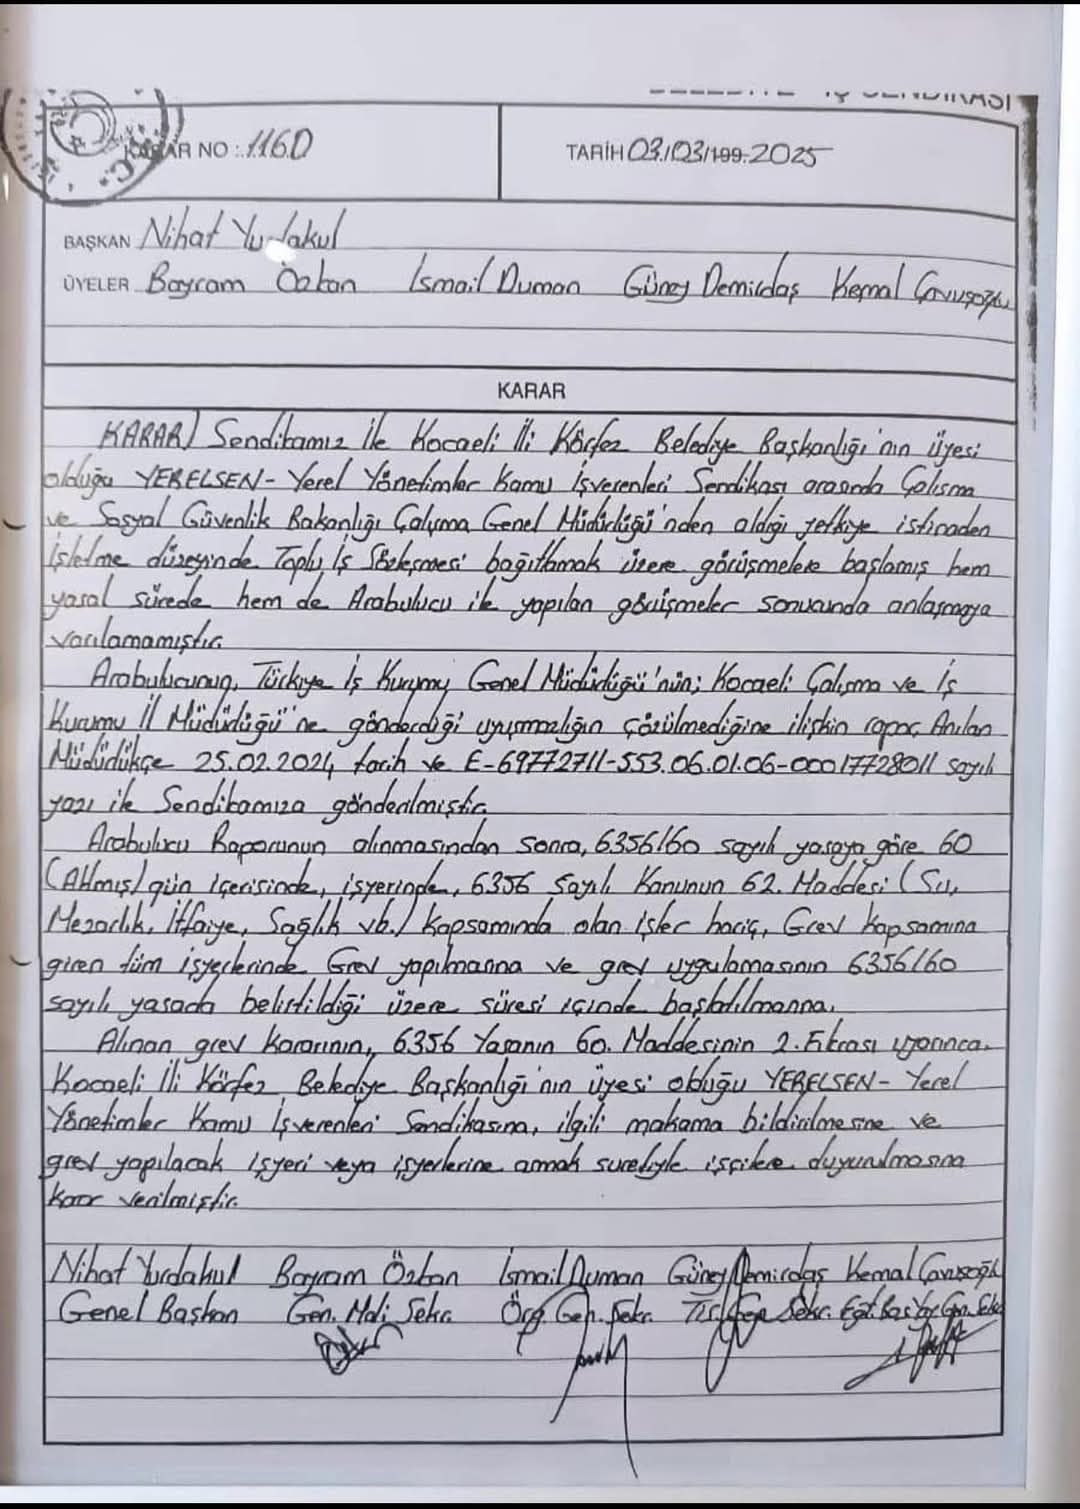 BELEDİYE - İŞ SENDİKASI
KARAR NO : 1160
TARİH 03/03/199.2025
BAŞKAN Nihat Yurdakul
ÜYELER Bayram Özkan İsmail Duman Güney Demirdaş Kemal Çavuşoğlu
KARAR
KARAR) Sendikamız ile Kocaeli İli Körfez Belediye Başkanlığı'nın üyesi
olduğu YERELSEN- Yerel Yönetimler Kamu İşverenleri Sendikası arasında Çalışma
ve Sosyal Güvenlik Bakanlığı Çalışma Genel Müdürlüğü'nden aldığı yetkiye istinaden
İşletme düzeyinde Toplu İş Sözleşmesi bağıtlamak üzere görüşmelere başlamış hem
yasal sürede hem de Arabulucu ile yapılan görüşmeler sonucunda anlaşmaya
varılamamıştır.
Arabulucunun, Türkiye İş Kurumu Genel Müdürlüğü'nün; Kocaeli Çalışma ve İş
Kurumu İl Müdürlüğü'ne gönderdiği uyuşmazlığın çözülmediğine ilişkin rapor, Anılan
Müdürlükçe 25.02.2024 tarih ve E-69772711-553.06.01.06-00017728011 sayılı
yazı ile Sendikamıza gönderilmiştir.
Arabulucu Raporunun alınmasından sonra, 6356/60 sayılı yasaya göre 60
(Altmış) gün içerisinde, işyerinde, 6356 Sayılı Kanunun 62. Maddesi (Su,
Mezarlık, İtfaiye, Sağlık vb.) kapsamında olan işler hariç, Grev kapsamına
giren tüm işyerlerinde Grev yapılmasına ve grev uygulamasının 6356/60
sayılı yasada belirtildiği üzere süresi içinde başlatılmasına,
Alınan grev kararının, 6356 Yasanın 60. Maddesinin 2. Fıkrası uyarınca.
Kocaeli İli Körfez Belediye Başkanlığı'nın üyesi olduğu YERELSEN- Yerel
Yönetimler Kamu İşverenleri Sendikasına, ilgili makama bildirilmesine ve
grev yapılacak işyeri veya işyerlerine asmak suretiyle işçilere duyurulmasına
karar verilmiştir.
Nihat Yurdakul Bayram Özkan İsmail Duman Güney Demirdaş Kemal Çavuşoğlu
Genel Başkan Gen. Mali Sekr. Örg. Gen. Sekr. Sekr. Eğt. Bas.